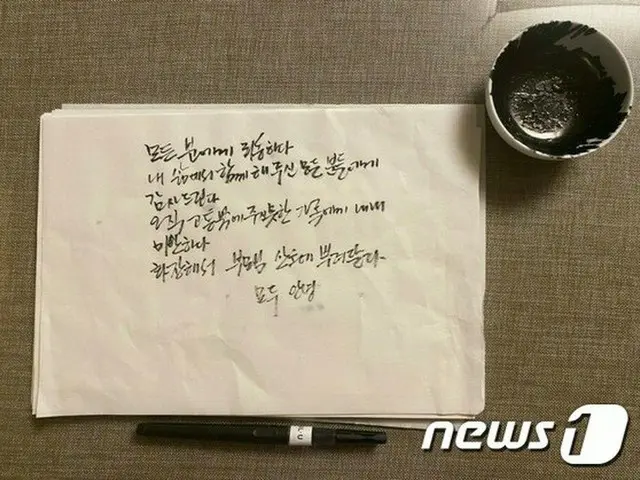 모든 분에게 죄송하다
내 삶에서 함께 해 주신 모든 분들에게
감사드린다
오직 고통밖에 주지못한 가족에게 내내
미안하다
화장해서 부모님 산소에 뿌려달라.
모두 안녕
news1